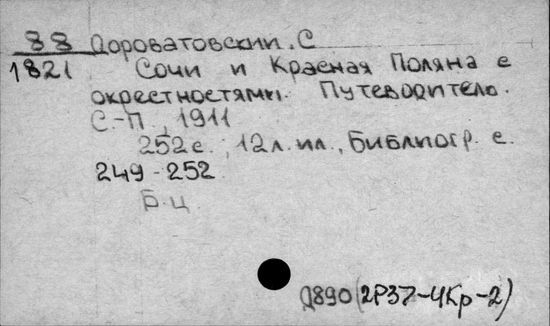 88 Дороватовский. С
1821 Сочи и Красная Поляна с
окрестностями. Путеводитель.
С.-П., 1911
252 с., 12 л. ил., Библиогр. с.
249-252
Б.ц.
Д890 (2Р37-4Кр-2)